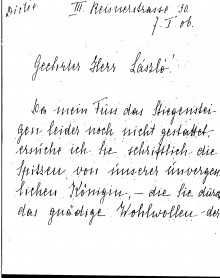 III Reisnerstrasse 30.
7. I 06.
Geehrter Herr László!
Da mein Fuss das Stiegenstei-
gen leider noch nicht gestattet,
ersuche ich Sie schriftlich die
Spitzen von unserer unverges-
lichen Königin, – die Sie durch
das gnädige Wohlwollen der